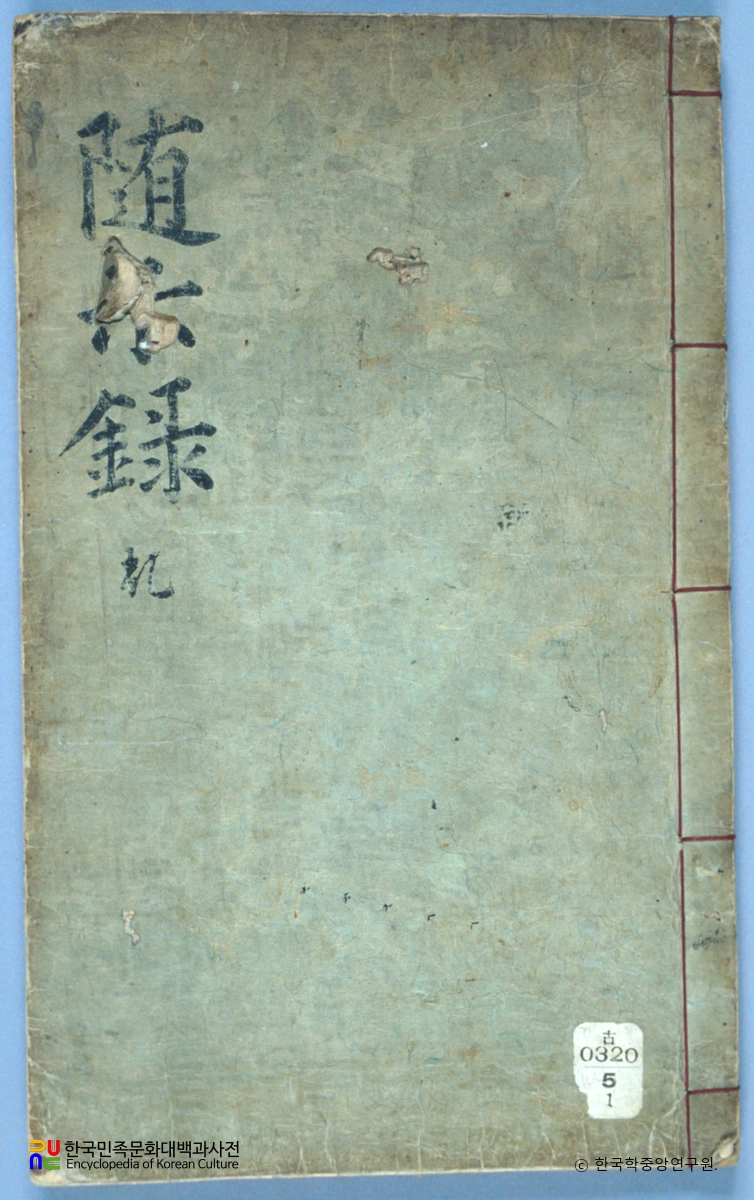 随
録
乹
古
0320
5
1
한국민족문화대백과사전
Encyclopedia of Korean Culture
© 한국학중앙연구원.